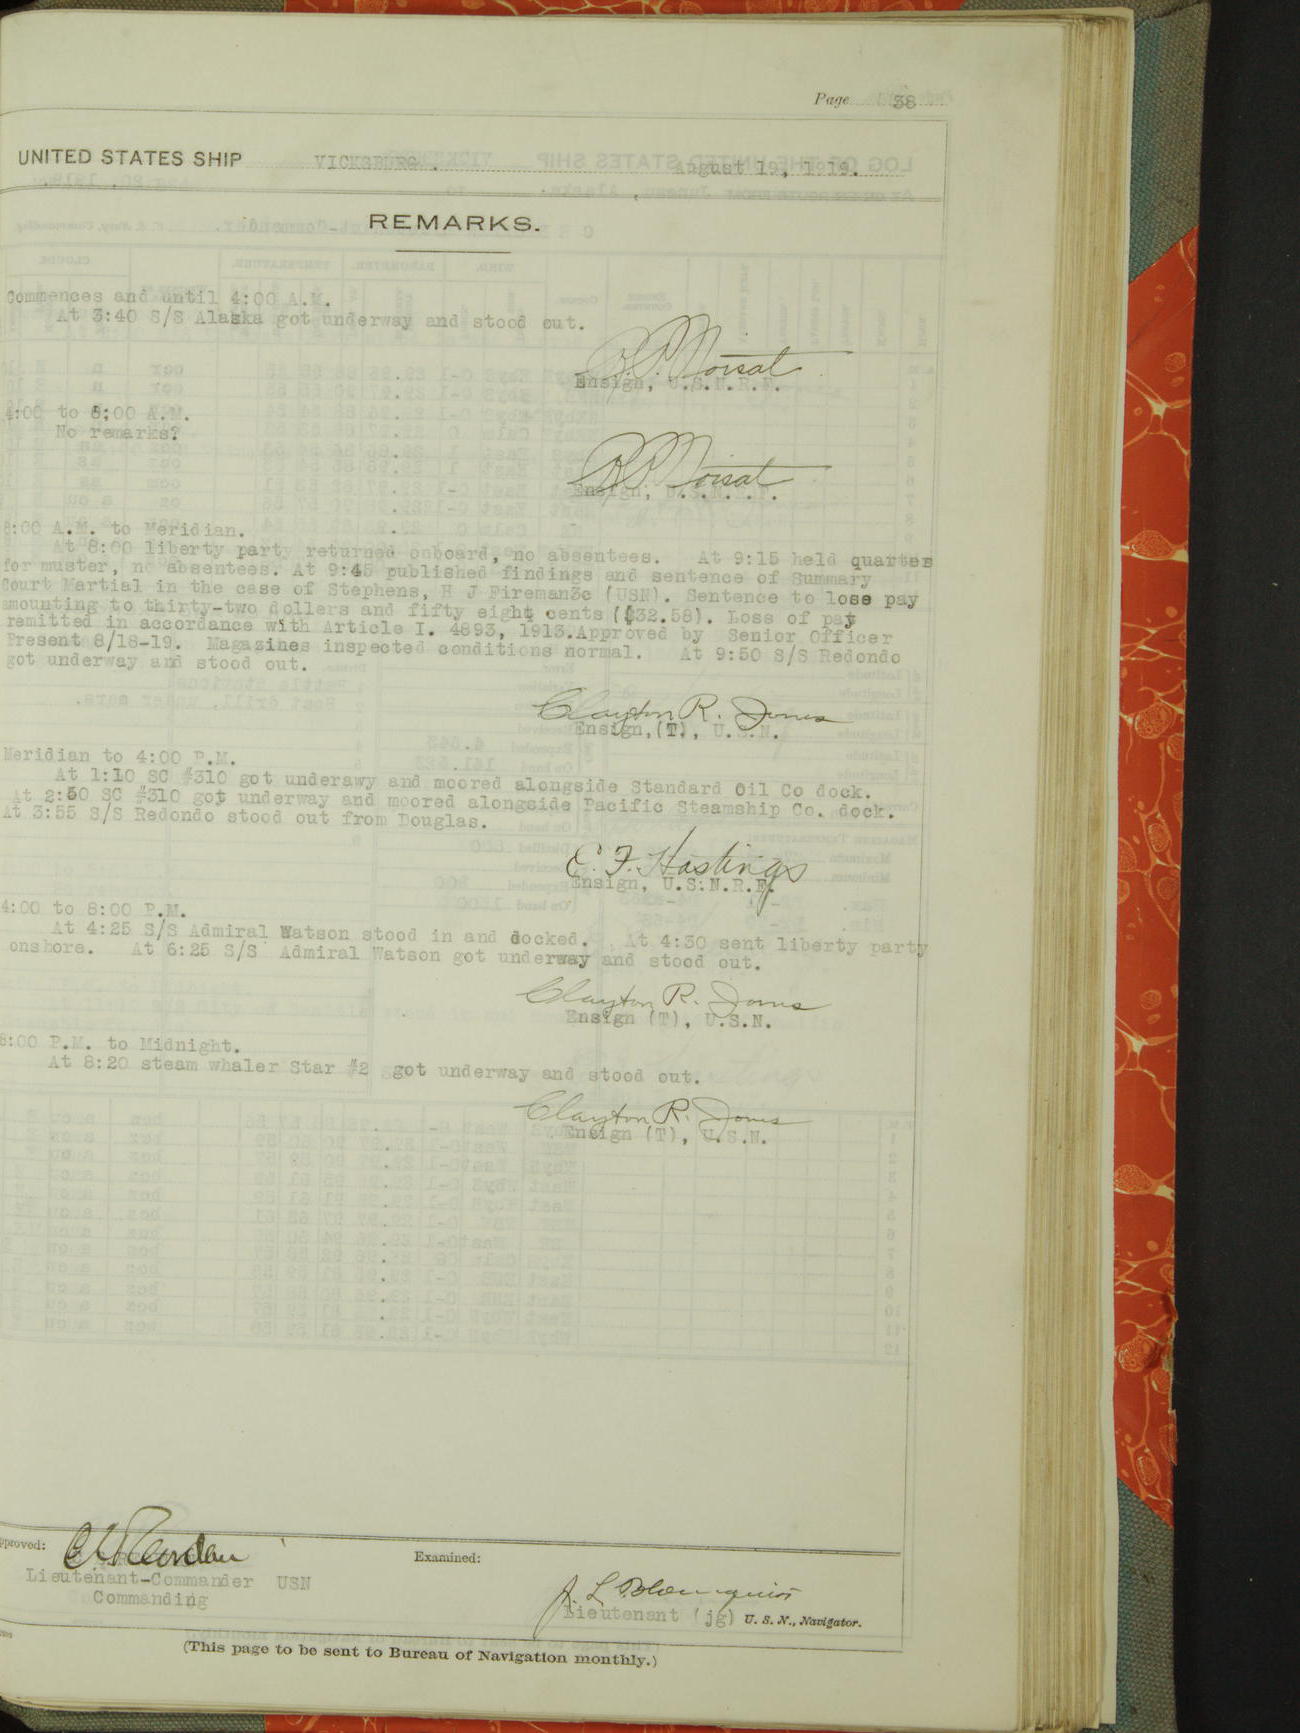 Page 38
UNITED STATES SHIP VICKSBURG. August 19, 1919.
REMARKS.
Commences and until 4:00 A.M.
At 3:40 S/S Alaska got underway and stood out.
Ensign, U.S.N.R.F.
4:00 to 8:00 A.M.
No remarks?
Ensign, U.S.N.R.F.
8:00 A.M. to Meridian.
At 8:00 liberty party returned onboard, no absentees. At 9:15 held quarters
for muster, no absentees. At 9:45 published findings and sentence of Summary
Court Martial in the case of Stephens, H J Fireman3c (USN). Sentence to lose pay
amounting to thirty-two dollers and fifty eight cents ($32.58). Loss of pay
remitted in accordance with Article I. 4893, 1913.Approved by Senior Officer
Present 8/18-19. Magazines inspected conditions normal. At 9:50 S/S Redondo
got underway and stood out.
Clayton R. Jones
Ensign,(T), U.S.N.
Meridian to 4:00 P.M.
At 1:10 SC #310 got underawy and moored alongside Standard Oil Co dock.
At 2:50 SC #310 got underway and moored alongside Pacific Steamship Co. dock.
At 3:55 S/S Redondo stood out from Douglas.
E. F. Hastings
Ensign, U.S.N.R.F.
4:00 to 8:00 P.M.
At 4:25 S/S Admiral Watson stood in and docked. At 4:30 sent liberty party
onshore. At 6:25 S/S Admiral Watson got underway and stood out.
Clayton R. Jones
Ensign (T), U.S.N.
8:00 P.M. to Midnight.
At 8:20 steam whaler Star #2 got underway and stood out.
Clayton R. Jones
Ensign (T), U.S.N.
Approved:
Lieutenant-Commander USN
Commanding
Examined:
Lieutenant (jg) U. S. N., Navigator.
(This page to be sent to Bureau of Navigation monthly.)